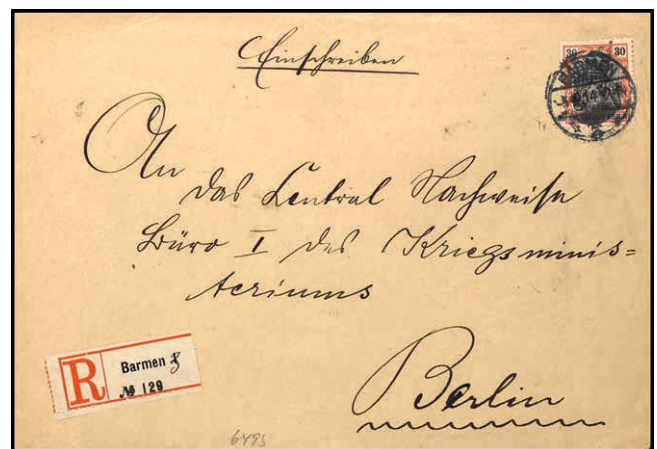 Einschreiben
30 30
BARMEN
An
das Central Nachweise
Büro I des Kriegsminis=
teriums
R Barmen 8
№ 129
Berlin
6495